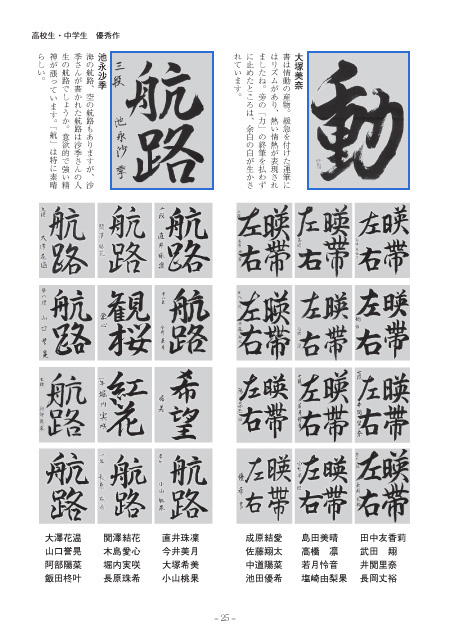 高校生・中学生　優秀作
大塚美奈
書は情動の産物。緩急を付けた運筆に
はリズムがあり、熱い情熱が表現され
ましたね。旁の「力」の終筆を払わず
に止めたところは、余白の白が生かさ
れています。
動
池永沙季
海の航路、空の航路もありますが、沙
季さんが書かれた航路は沙季さんの人
生の航路でしょうか。意欲的で強い精
神が漲っています。「航」は特に素晴
らしい。
航路
三段　池永沙季
暎帯左右
暎帯左右
暎帯左右
暎帯左右
暎帯左右
暎帯左右
暎帯左右
暎帯左右
暎帯左右
暎帯左右
暎帯左右
暎帯左右
航路
航路
航路
航路
観桜
航路
希望
紅花
航路
航路
航路
航路
田中友香莉
武田　翔
井関里奈
長岡丈裕
島田美晴
高橋　凛
若月怜音
塩崎由梨果
成原結愛
佐藤翔太
中道陽菜
池田優希
直井珠凜
今井美月
大塚希美
小山桃果
関澤結花
木島愛心
堀内実咲
長原珠希
大澤花温
山口誉晃
阿部陽菜
飯田柊叶
– 25 –